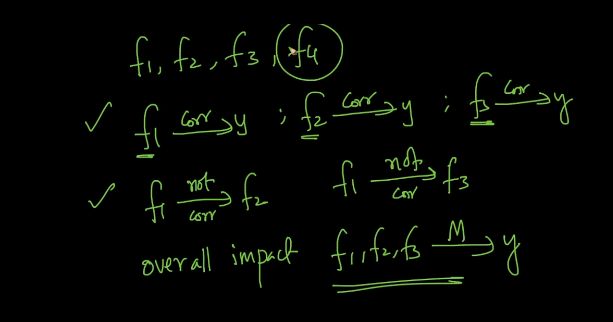 f1, f2, f3, f4
✓ f1 corr→ y ; f2 corr→ y ; f3 corr→ y
✓ f1 not corr→ f2 f1 not corr→ f3
overall impact f1, f2, f3 M→ y